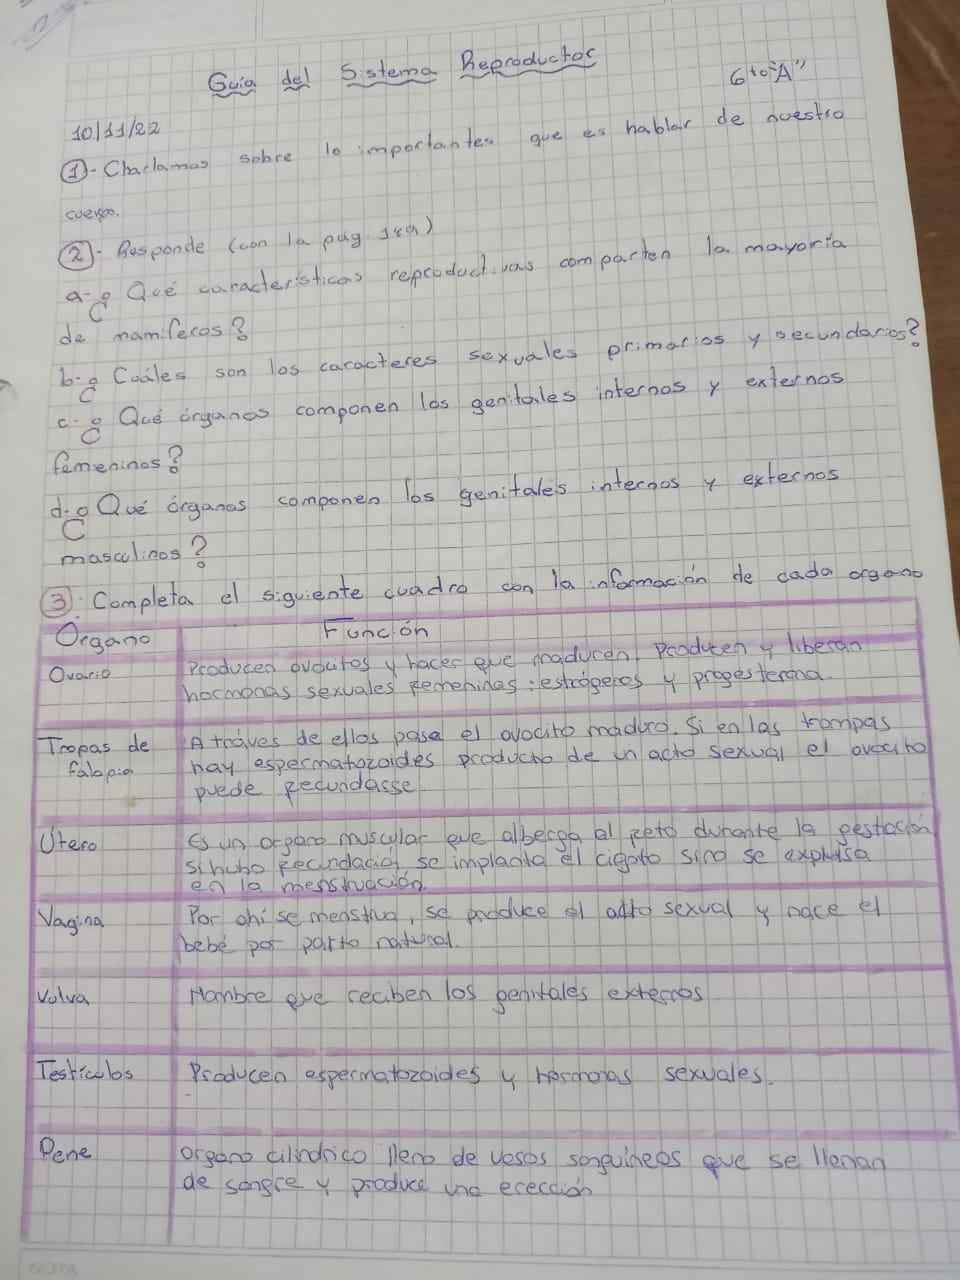 Guia del Sistema Reproductor
6to "A"
10/11/22
①- Charlamos sobre lo importantes que es hablar de nuestro
cuerpo.
②- Responde (con la pag 189)
a- ¿Qué características reproductivas comparten la mayoría
de mamiferos?
b- ¿Cuáles son los caracteres sexuales primarios y secundarios?
c- ¿Qué órganos componen los genitales internos y externos
femeninos?
d- ¿Qué órganos componen los genitales internos y externos
masculinos?
③. Completa el siguiente cuadro con la información de cada organo
Organo Función
Ovario Producen ovocitos y hacer que maduren. Producen y liberan
hormonas sexuales femeninas: estrógeros y progesterona.
Tropas de falopia A tráves de ellos pasa el ovocito maduro. Si en las trompas
hay espermatozoides producto de un acto sexual el ovocito
puede fecundasse
Utero Es un organo muscular que alberga al feto durante la gestación
si hubo fecundación se implanta el cigoto sino se expulsa
en la menstruación.
Vagina Por ahí se menstrua, se produce el acto sexual y nace el
bebé por parto natural.
Vulva Nombre que reciben los genitales externos
Testículos Producen espermatozoides y hormonas sexuales.
Pene organo cilindrico lleno de vasos sanguineos que se llenan
de sangre y produce una erección